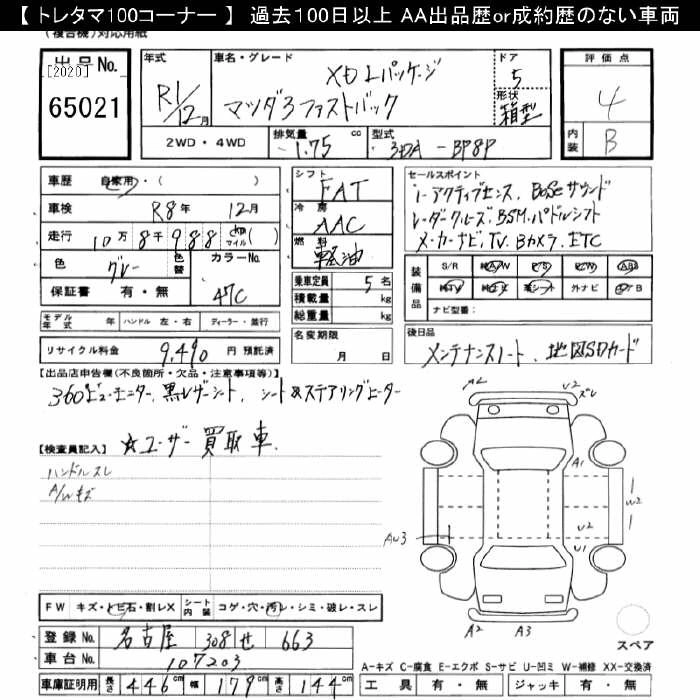 【 トレタマ100コーナー 】 過去100日以上 AA出品歴or成約歴のない車両
(複合機)対応用紙
出品No. [2020] 65021
年式 R1/12月
車名・グレード XD Lパッケージ
マツダ3ファストバック
ドア 5
形状 箱型
評価点 4
内装 B
2WD・4WD
排気量 1.75 cc
型式 3DA-BP8P
車歴 自家用・( )
車検 R8年 12月
走行 10万8千988 km マイル( )
色 グレー
色替
カラーNo. 47C
保証書 有・無
シフト FAT
冷房 AAC
燃料 軽油
乗車定員 5名
積載量 kg
総重量 kg
セールスポイント
i-アクティブセンス、BOSEサウンド
レーダークルーズ、BSM、パドルシフト
メーカーナビ、TV、Bカメラ、ETC
装備品 S/R A/W P/S P/W ABS
純TV 純ナビ 革シート 外ナビ エアB
ナビ型番:
モデル年式 年 ハンドル 左・右 ディーラー・並行
リサイクル料金 9,490 円 預託済
名変期限 月 日
後日品
メンテナンスノート、地図SDカード
【出品店申告欄(不良箇所・欠品・注意事項等)】
360°ビューモニター、黒レザーシート、シート&ステアリングヒーター
【検査員記入】 ☆ユーザー買取車
ハンドルスレ
A/Wキズ
A2
U2 ズレ
A1
W2
U2
U1
AU3
A2 A3
スペア
FW キズ・トビ石・割レX シート内装 コゲ・穴・汚レ・シミ・破レ・スレ
登録No. 名古屋 308 せ 663
車台No. 107203
車庫証明用 長さ 446cm 幅 179cm 高さ 144cm
A-キズ C-腐食 E-エクボ S-サビ U-凹ミ W-補修 XX-交換済
工具 有・無 ジャッキ 有・無